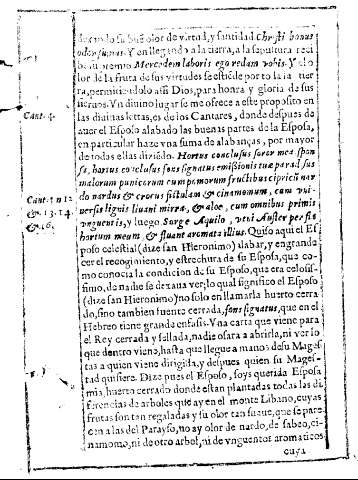 do su buẽ olor de virtud, y santidad Christi bonus
odor sumus. Y en llegando a la tierra, a la sepultura reci
be su premio Mercedem laboris ego reddam vobis. Y el o
lor de la fruta de sus virtudes se estiẽde por toda la tier
ra, permitiendolo assi Dios, para honra y gloria de sus
sieruos. Y n diuino lugar se me ofrece a este proposito en
las diuinas letras, es de los Cantares, donde despues de
Cant. 4.
auer el Esposo alabado las buenas partes de la Esposa,
en particular haze vna suma de alabanças, por mayor
de todas ellas diziẽdo. Hortus conclusus soror mea spon
sa, hortus conclusus fons signatus emissiones tuæ parad sus
malorum punicorum cum pomorum fructibus cipri cū nar
Cant. 4. n 12
do nardus & crocus fistula & cinamomum, cum vni
& 13. 14.
uersis lignis liuani mirra, & aloe, cum omnibus primis
& 16.
vnguentis, y luego Surge Aquilo, veni Auster perfla
hortum meum & fluant aromata illius. Quiso aqui el Es
poso celestial (dize san Hieronimo) alabar, y engrande
cer el recogimiento, y estrechura de su Esposa, que co-
mo conocia la condicion de su Esposo, que era celosis-
simo, de nadie se dexaua ver; lo qual significo el Esposo
(dize san Hieronimo) no solo en llamarla huerto cerra
do, sino tambien fuente cerrada, fons signatus, que en el
Hebreo tiene grande enfasis. Vna carta que viene para
el Rey cerrada y sellada, nadie osara a abrirla, ni ver lo
que dentro viene, hasta que llegue a manos de su Mages
tas a quien viene dirigida, y despues quien su Mages-
tad quisiere. Dize pues el Esposo, soys querida Esposa
mia, huerto cerrado donde estan plantadas todas las di
ferencias de arboles que ay en el monte Libano, cuyas
frutas son tan regaladas y su olor tan suaue, que se pare
cen a las del Parayso, no ay olor de nardo, de sabeo, ci-
namomo, ni de otro arbol, ni de vnguentos aromaticos
cuya